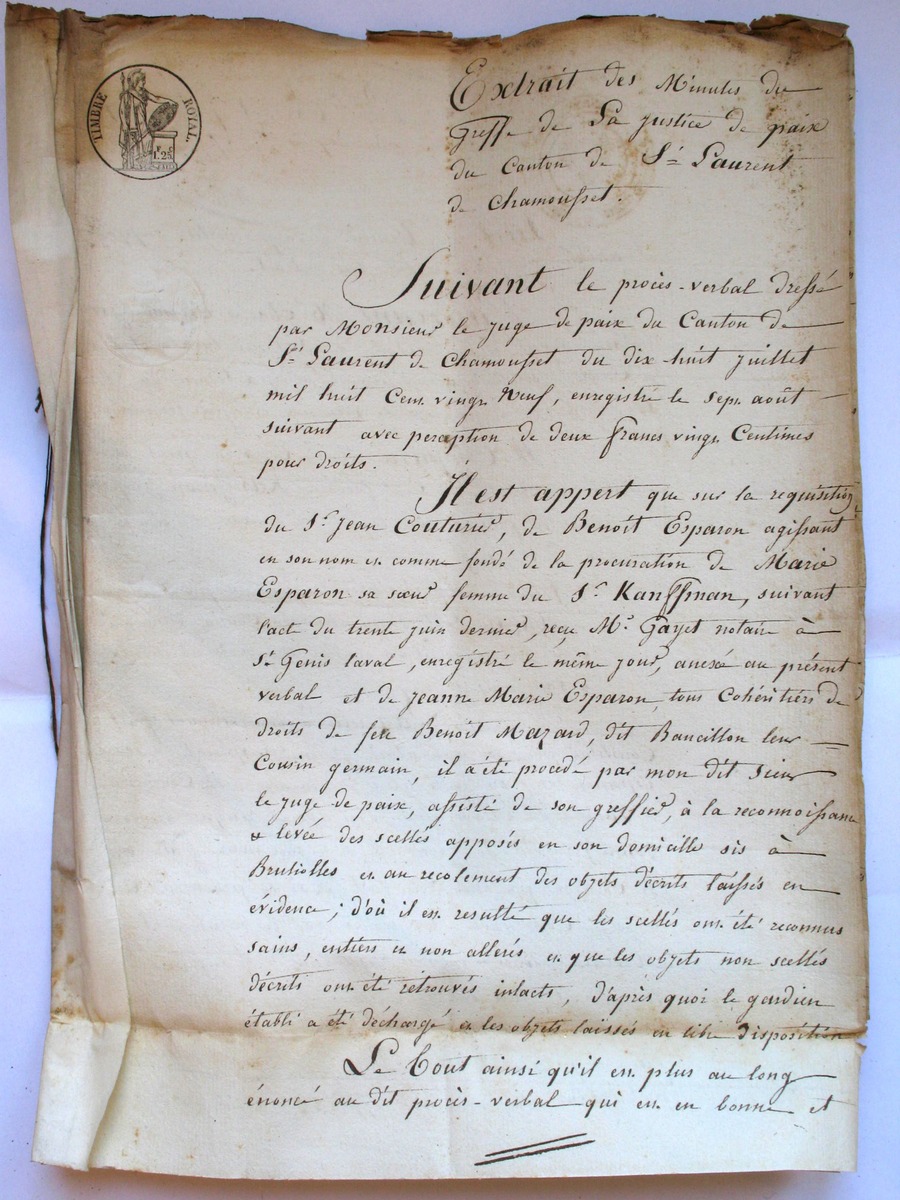 TIMBRE ROYAL.
1.F 25.C
Extrait des Minutes du
Greffe de La justice de paix
du Canton de St. Laurent
de Chamousset.
Suivant le procès-verbal dressé
par Monsieur le juge de paix du Canton de
St. Laurent de Chamousset du dix huit juillet
mil huit Cent vingt Neuf, enregistré le sept août
suivant avec perception de deux francs vingt Centimes
pour droits.
Il est appert que sur la requisition
du Sr. Jean Couturier, de Benoit Esparon agissant
en son nom et comme fondé de la procuration de Marie
Esparon sa sœur femme du Sr. Kauffman, suivant
l'acte du trente juin dernier, reçu Me. Gayet notaire à
St. Genis laval, enregistré le même jour, anexé au présent
verbal et de jeanne Marie Esparon, tous Cohéritiers de
droits de feu Benoit Mazard, dit Bancillon leur
Cousin germain, il a été procedé par mon dit Sieur
le juge de paix, assisté de son greffier, à la reconnoissance
& levée des scellés apposés en son domicille sis à
Brullolles et au recolement des objets décrits laissés en
évidence; d'où il est resulté que les scellés ont été reconnus
sains, entiers et non allerés et que les objets non scellés
décrits ont été rétrouvés intacts, d'après quoi le gardien
établi a été déchargé et les objets laissés en libre disposition
Le Tout ainsi qu'il est plus au long
énoncé au dit procès-verbal qui est en bonne et